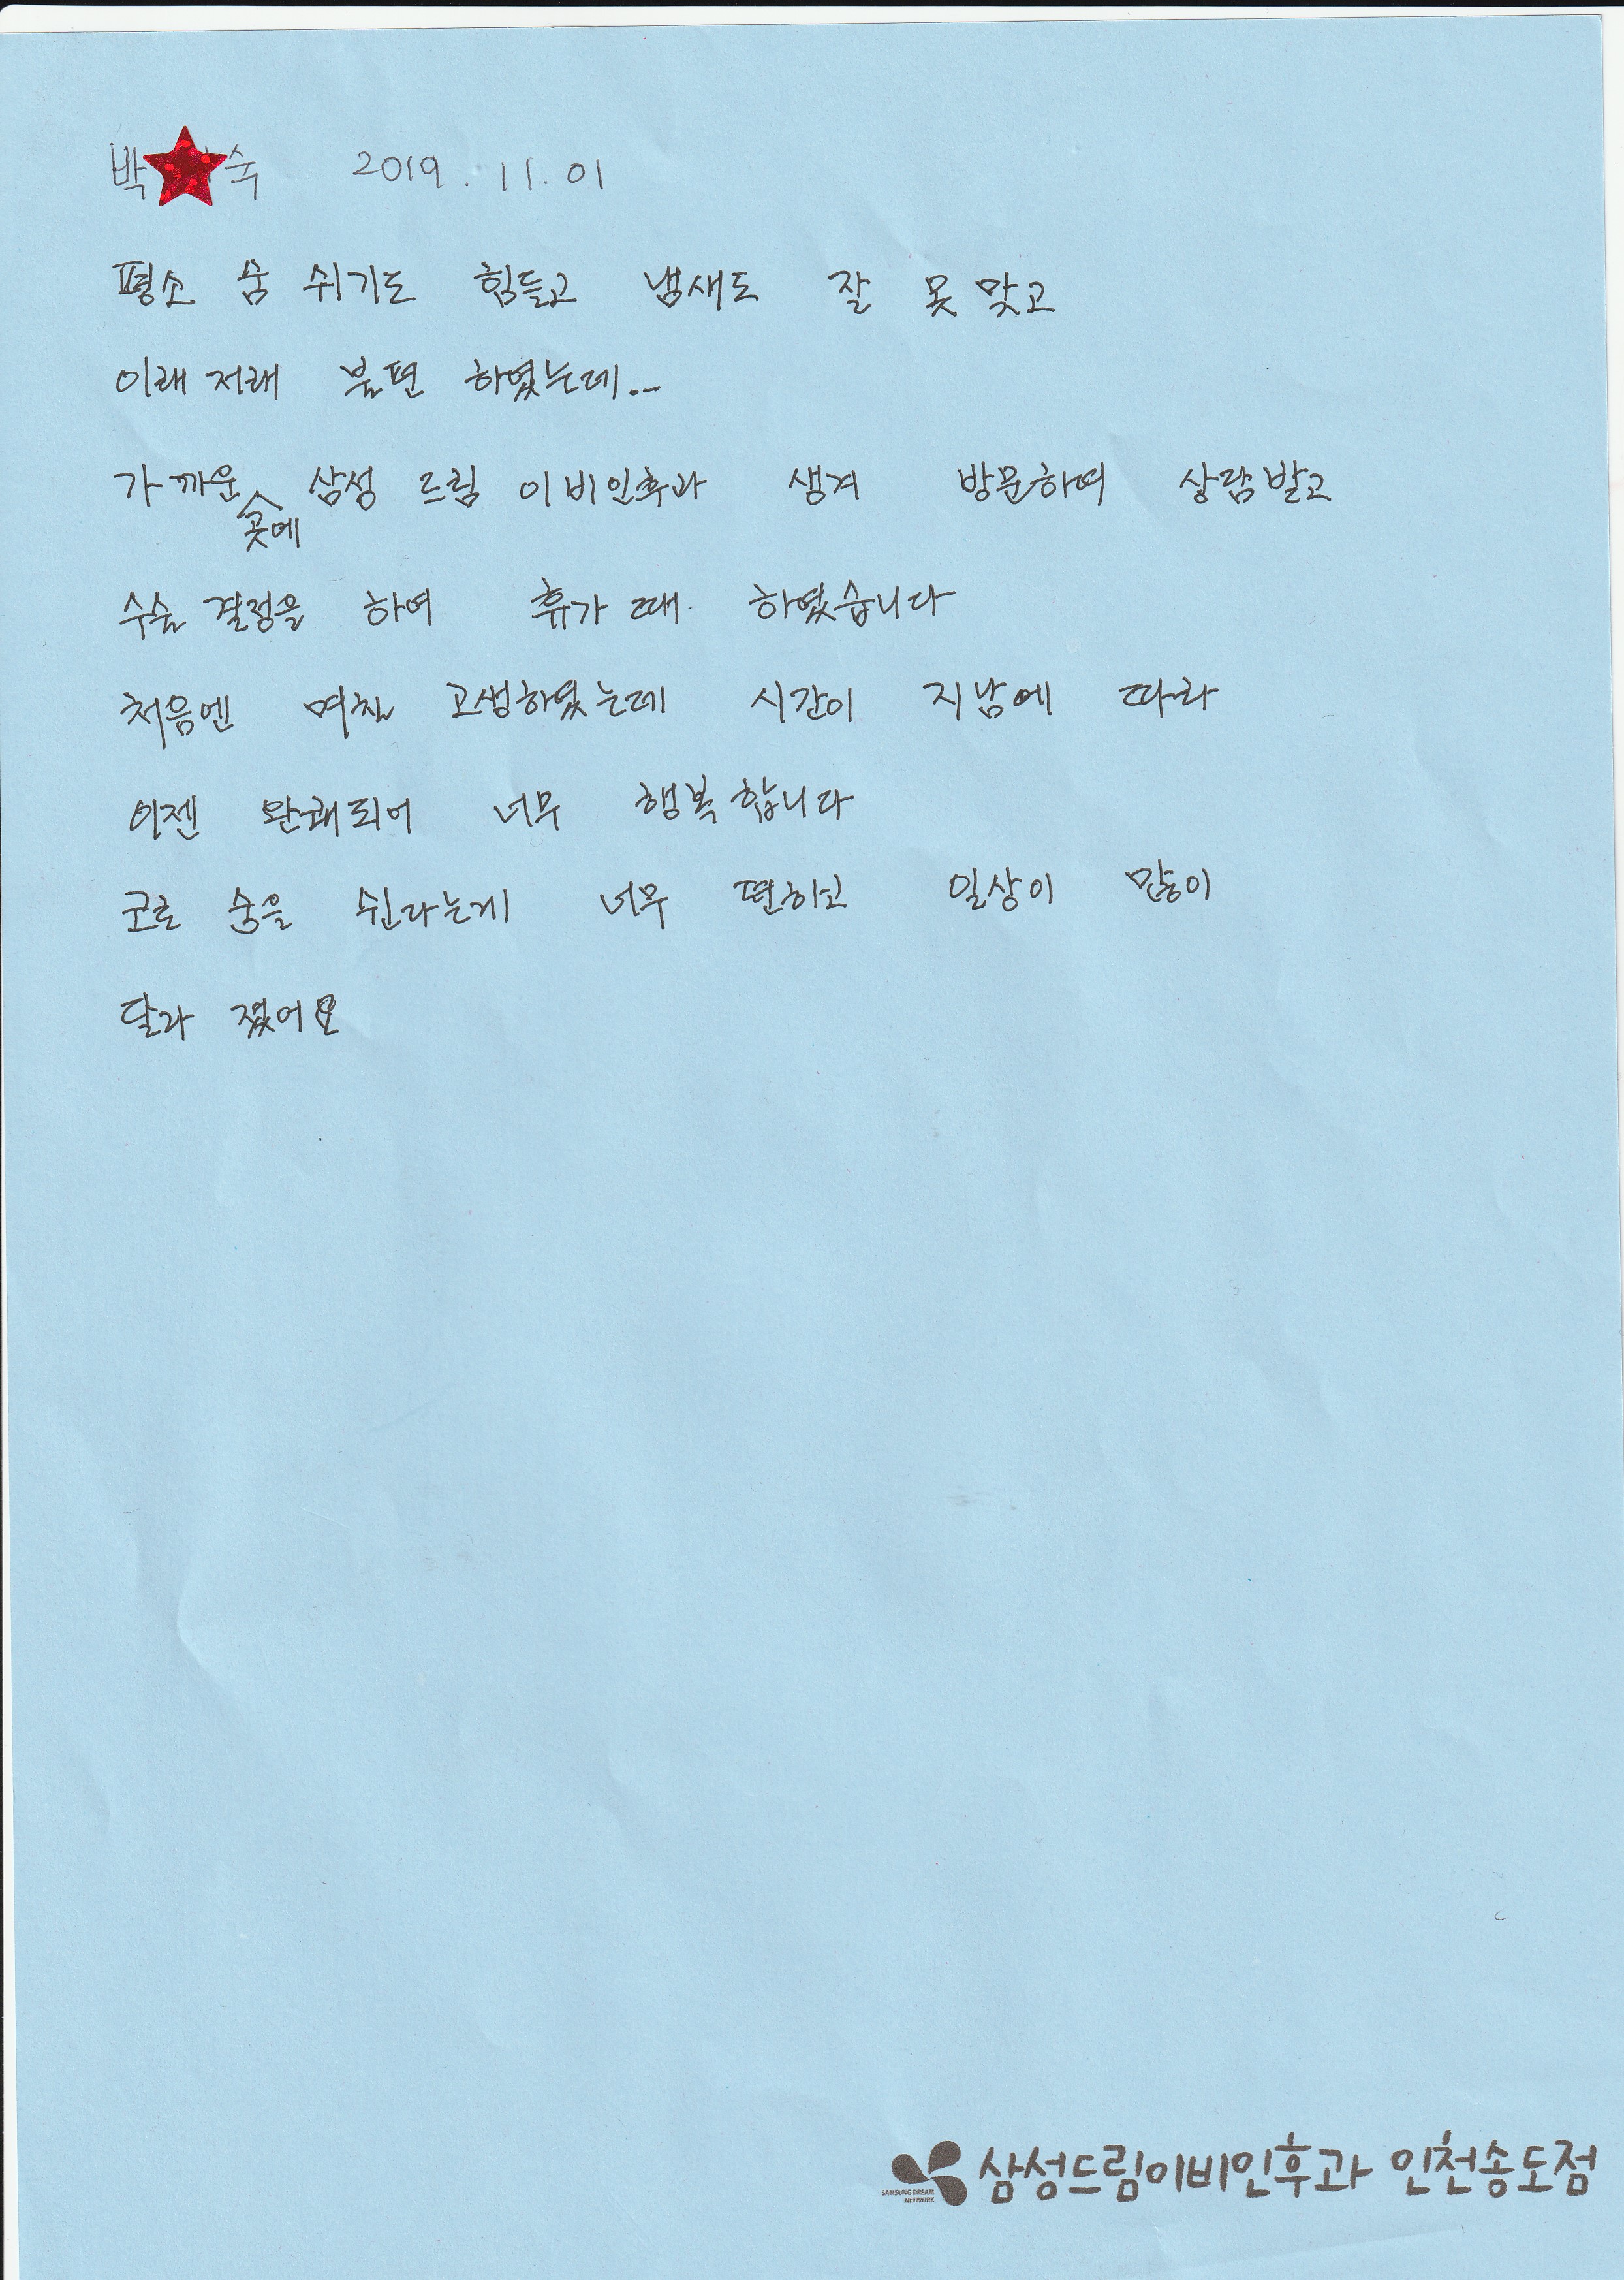 박 숙 2019. 11. 01
평소 숨 쉬기도 힘들고 냄새도 잘 못 맞고
이래 저래 불편 하였는데...
가까운 곳에 삼성 드림 이비인후과 생겨 방문하여 상담받고
수술 결정을 하여 휴가 때 하였습니다
처음엔 며칠 고생하였는데 시간이 지남에 따라
이젠 완쾌되어 너무 행복합니다
코로 숨을 쉰다는게 너무 편하고 일상이 많이
달라 졌어요
삼성드림이비인후과 인천송도점
SAMSUNG DREAM
NETWORK